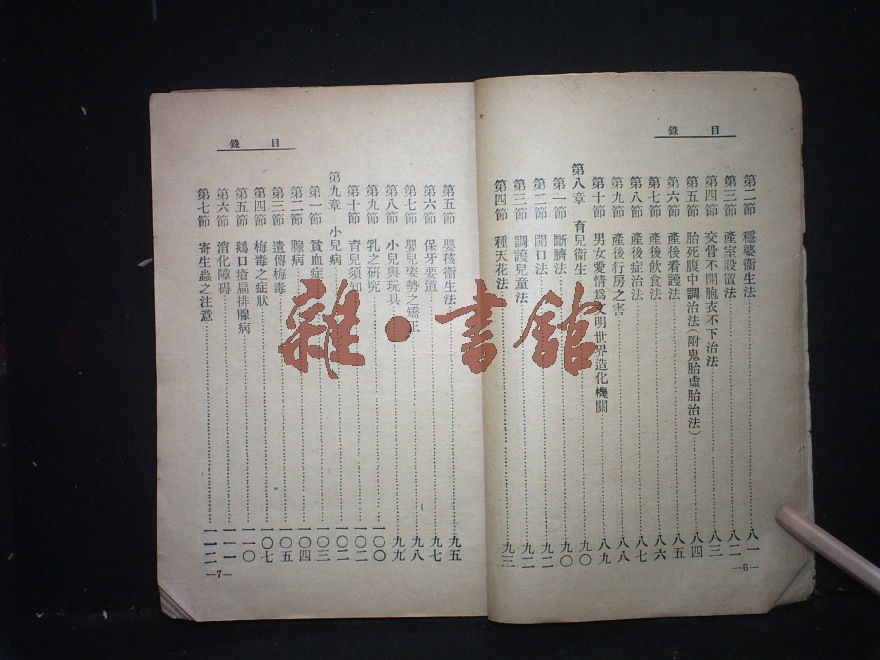 目錄
第二節 穩婆衞生法 八一
第三節 產室設置法 八二
第四節 交骨不開胞衣不下治法 八三
第五節 胎死腹中調治法(附鬼胎虛胎治法) 八四
第六節 產後看護法 八五
第七節 產後飲食法 八六
第八節 產後症治法 八七
第九節 產後行房之害 八八
第十節 男女愛情爲文明世界造化機關 八九
第八章 育兒衞生 九〇
第一節 斷臍法 九〇
第二節 開口法 九二
第三節 調護兒童法 九二
第四節 種天花法 九三
—6—
目錄
第五節 嬰孩衞生法 九五
第六節 保牙要道 九七
第七節 嬰兒姿勢之矯正 九八
第八節 小兒與玩具 九九
第九節 乳之研究 一〇〇
第十節 育兒須知
第九章 小兒病 一〇二
第一節 貧血症 一〇三
第二節 腺病 一〇四
第三節 遺傳梅毒 一〇五
第四節 梅毒之症狀 一〇七
第五節 鵝口瘡扁排腺病 一一〇
第六節 消化障碍 一一一
第七節 寄生蟲之注意 一一二
—7—
雜·書館